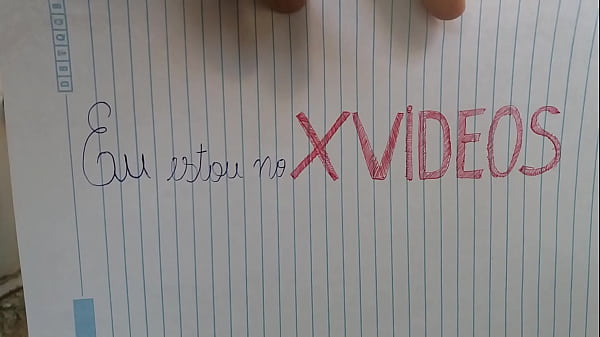 Eu estou no XVIDEOS